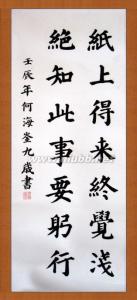 紙上得来終覺淺
絶知此事要躬行
壬辰年何海崟九歲書